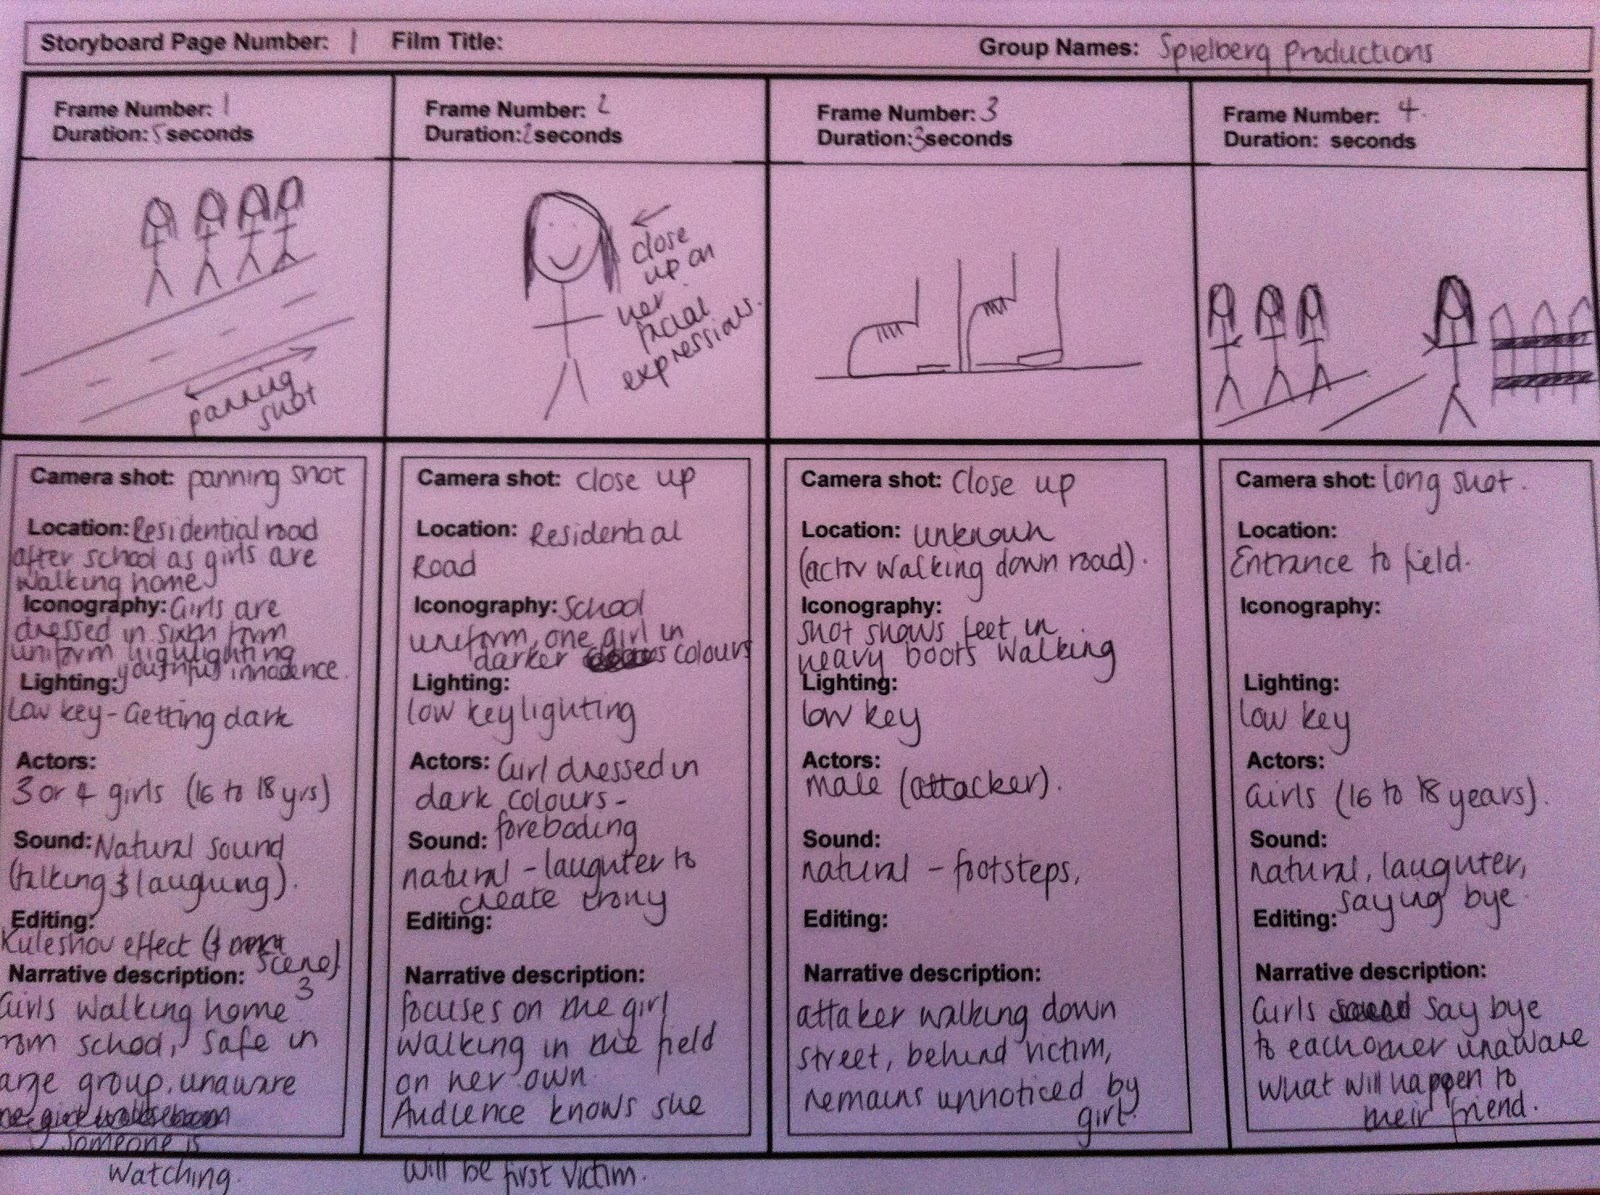 Storyboard Page Number: 1 Film Title: Group Names: Spielberg Productions
Frame Number: 1
Duration: 5 seconds
panning
shot
Camera shot: panning shot
Location: Residential road
after school as girls are
walking home
Iconography: Girls are
dressed in sixth form
uniform highlighting
youthful innocence.
Lighting:
Low key - Getting dark
Actors:
3 or 4 girls (16 to 18 yrs)
Sound: Natural sound
(talking & laughing).
Editing:
Kuleshov effect (&
scene)
3
Narrative description:
Girls walking home
rom school, safe in
arge group, unaware
someone is
watching.
Frame Number: 2
Duration: 2 seconds
close
up on
her
facial
expressions.
Camera shot: close up
Location: Residential
Road
Iconography: School
uniform, one girl in
darker colours
Lighting:
low key lighting
Actors: Girl dressed in
dark colours -
foreboding
Sound:
natural - laughter to
create irony
Editing:
Narrative description:
focuses on the girl
walking in the field
on her own.
Audience knows she
will be first victim.
Frame Number: 3
Duration: 3 seconds
Camera shot: Close up
Location: unknown
(actor walking down road).
Iconography:
shot shows feet in
heavy boots walking
Lighting:
low key
Actors:
male (attacker).
Sound:
natural - footsteps,
Editing:
Narrative description:
attaker walking down
street, behind victim,
remains unnoticed by
girl.
Frame Number: 4.
Duration: seconds
Camera shot: long shot.
Location:
Entrance to field.
Iconography:
Lighting:
low key
Actors:
Girls (16 to 18 years).
Sound:
natural, laughter,
saying bye.
Editing:
Narrative description:
Girls say bye
to eachother unaware
what will happen to
their friend.